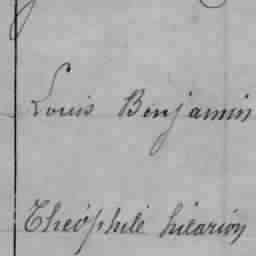 Louis Benjamin
Théophile hilarion